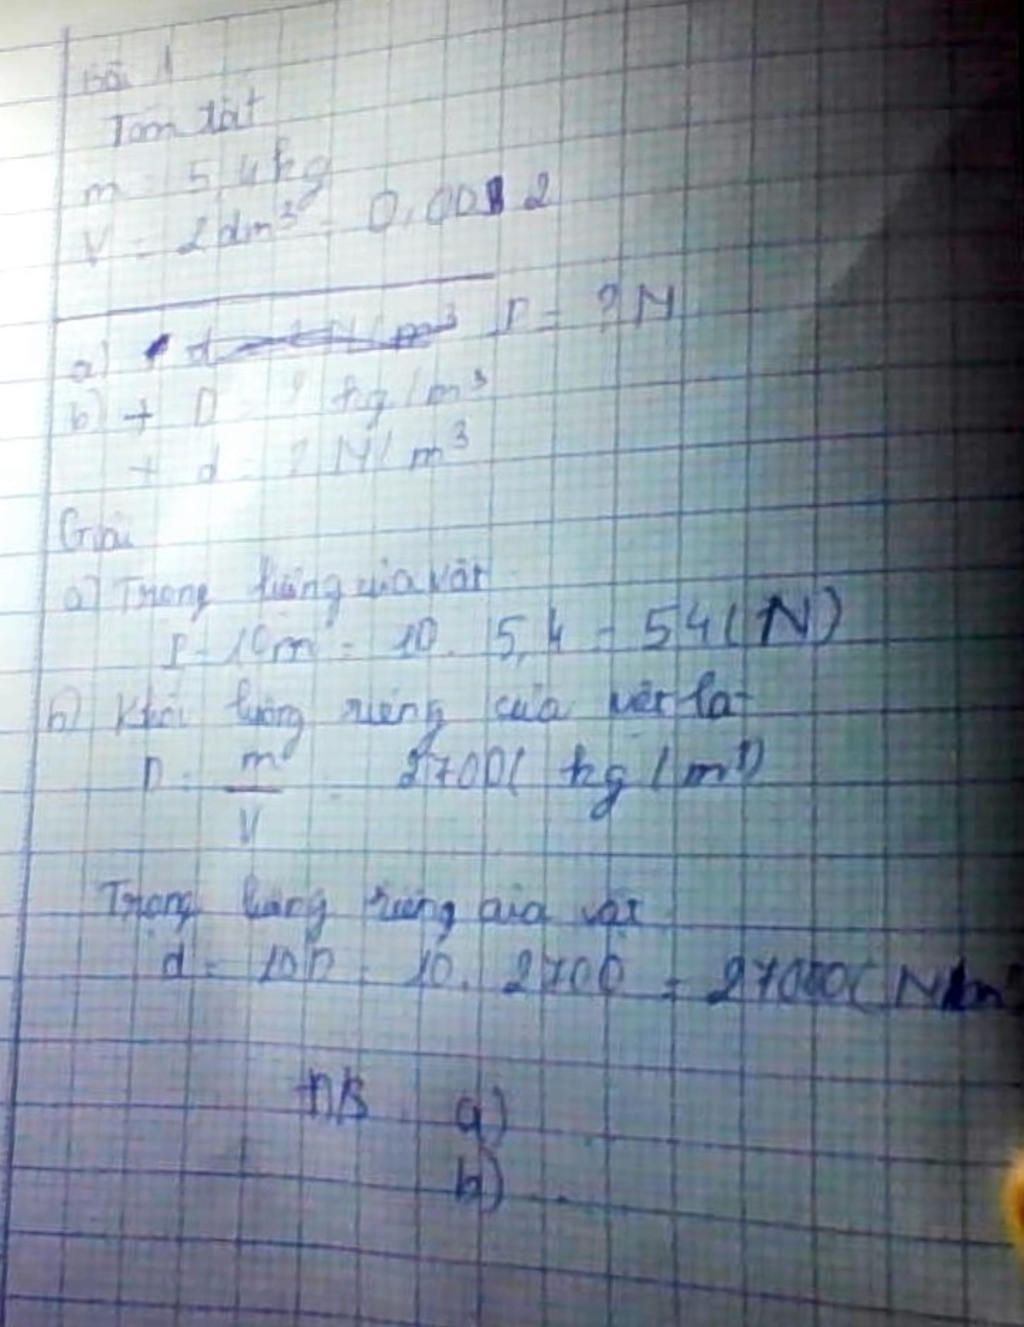 Bài 1
Tóm tắt
m = 5,4kg
V = 2dm³ = 0,002
a) P = ? N
b) + D = ? kg/m³
+ d = ? N/m³
Giải
a) Trọng lượng của vật
P = 10m = 10. 5,4 = 54(N)
b) Khối lượng riêng của vật là
D = m/V = 2700( kg/m³)
Trọng lượng riêng của vật
d = 10D = 10. 2700 = 27000( N/m
ĐS a)
b)